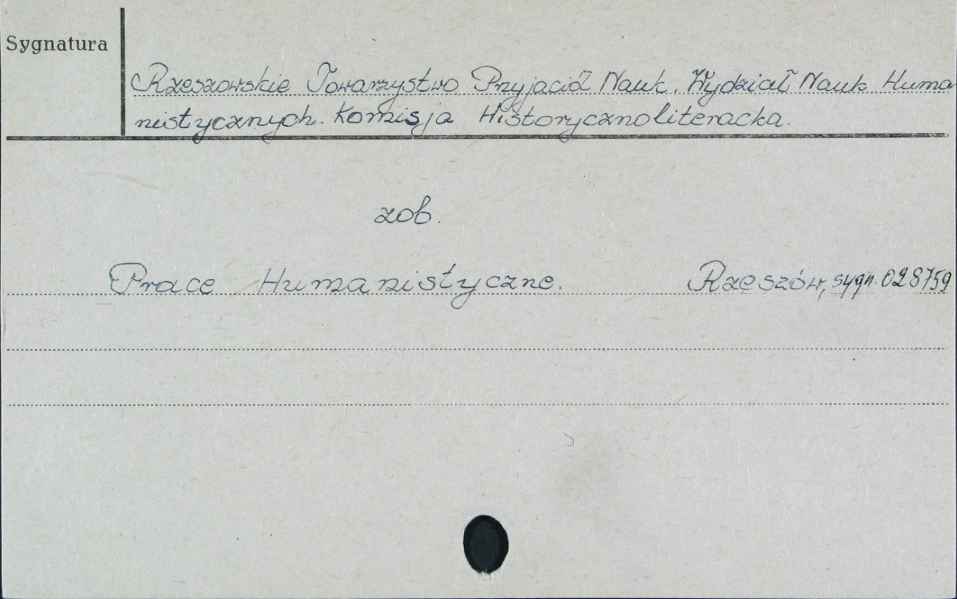 Sygnatura
Rzeszowskie Towarzystwo Przyjaciół Nauk. Wydział Nauk Huma
nistycznych. Komisja Historycznoliteracka.
zob.
Prace Humanistyczne. Rzeszów, sygn. 028759